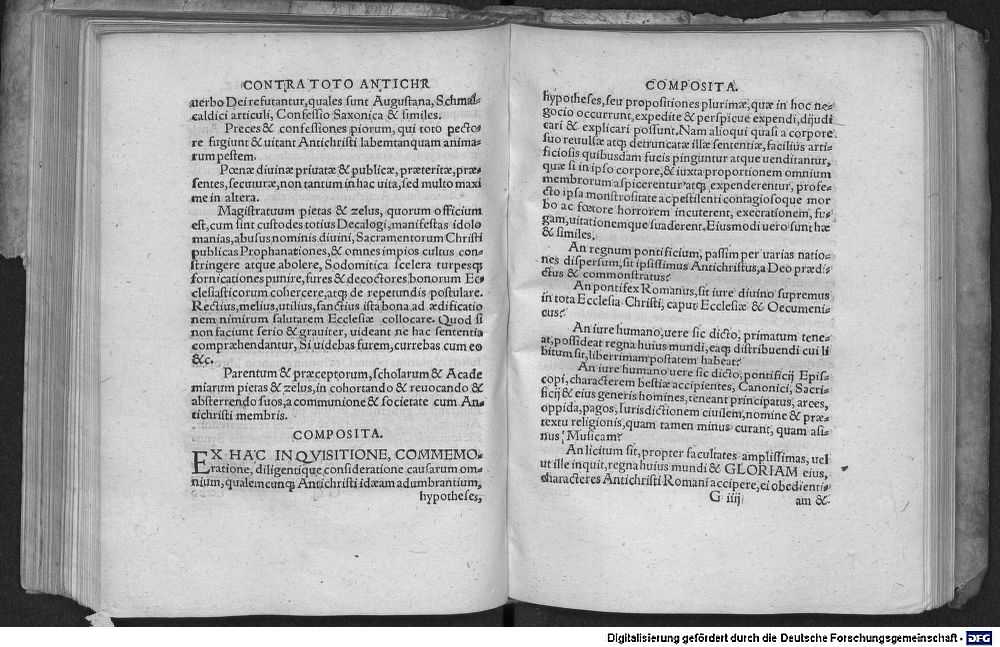 CONTRA TOTO ANTICHR
uerbo Dei refutantur, quales sunt Augustana, Schmal-
caldici articuli, Confessio Saxonica & similes.
Preces & confessiones piorum, qui toto pecto-
re fugiunt & uitant Antichristi labem tanquam anima-
rum pestem.
Pœnæ diuinæ priuatæ & publicæ, præteritæ, præ-
sentes, secuturæ, non tantum in hac uita, sed multo maxi
me in altera.
Magistratuum pietas & zelus, quorum officium
est, cum sint custodes totius Decalogi, manifestas idolo
manias, abusus nominis diuini, Sacramentorum Christi
publicas Prophanationes, & omnes impios cultus con-
stringere atque abolere, Sodomitica scelera turpesqꝫ
fornicationes punire, fures & decoctores bonorum Ec-
clesiasticorum cohercere, atqꝫ de repetundis postulare.
Rectius, melius, utilius, sanctius ista bona ad ædificatio
nem nimirum salutarem Ecclesiæ collocare. Quod si
non faciunt serio & grauiter, uideant ne hac sententia
compræhendantur, Si uidebas furem, currebas cum eo
&c.
Parentum & præceptorum, scholarum & Acade
miarum pietas & zelus, in cohortando & reuocando &
absterrendo suos, a communione & societate cum An-
tichristi membris.
COMPOSITA.
EX HAC INQVISITIONE, COMMEMO-
ratione, diligentique consideratione causarum om-
nium, qualemcunqꝫ Antichristi idæam adumbrantium,
hypotheses,
COMPOSITA.
hypotheses, seu propositiones plurimæ, quæ in hoc ne-
gocio occurrunt, expedite & perspicue expendi, dijudi
cari & explicari possunt. Nam alioqui quasi a corpore
suo reuulsæ atqꝫ detruncatæ illæ sententiæ, facilius arti-
ficiosis quibusdam fucis pinguntur atque uenditantur,
quæ si in ipso corpore, & iuxta proportionem omnium
membrorum aspicerentur atqꝫ expenderentur, profe-
cto ipsa monstrositate ac pestilenti contagiosoque mor
bo ac fœtore horrorem incuterent, execrationem, fu-
gam, uitationemque suaderent. Eiusmodi uero sunt hæ
& similes.
An regnum pontificium, passim per uarias natio-
nes dispersum, sit ipsissimus Antichristus, a Deo prædi-
ctus & commonstratus?
An pontifex Romanus, sit iure diuino supremus
in tota Ecclesia Christi, caput Ecclesiæ & Oecumeni-
cus?
An iure humano, uere sic dicto, primatum tene-
at, possideat regna huius mundi, eaqꝫ distribuendi cui li
bitum sit, liberrimam postatem habeat?
An iure humano uere sic dicto, pontificij Epis-
copi, characterem bestiæ accipientes, Canonici, Sacri-
ficij & eius generis homines, teneant principatus, arces,
oppida, pagos, Iurisdictionem ciuilem, nomine & præ-
textu religionis, quam tamen minus curant, quam asi-
nus, Musicam?
An licitum sit, propter facultates amplissimas, uel
ut ille inquit, regna huius mundi & GLORIAM eius,
characteres Antichristi Romani accipere, ei obedienti-
G iiij am &
Digitalisierung gefördert durch die Deutsche Forschungsgemeinschaft - DFG